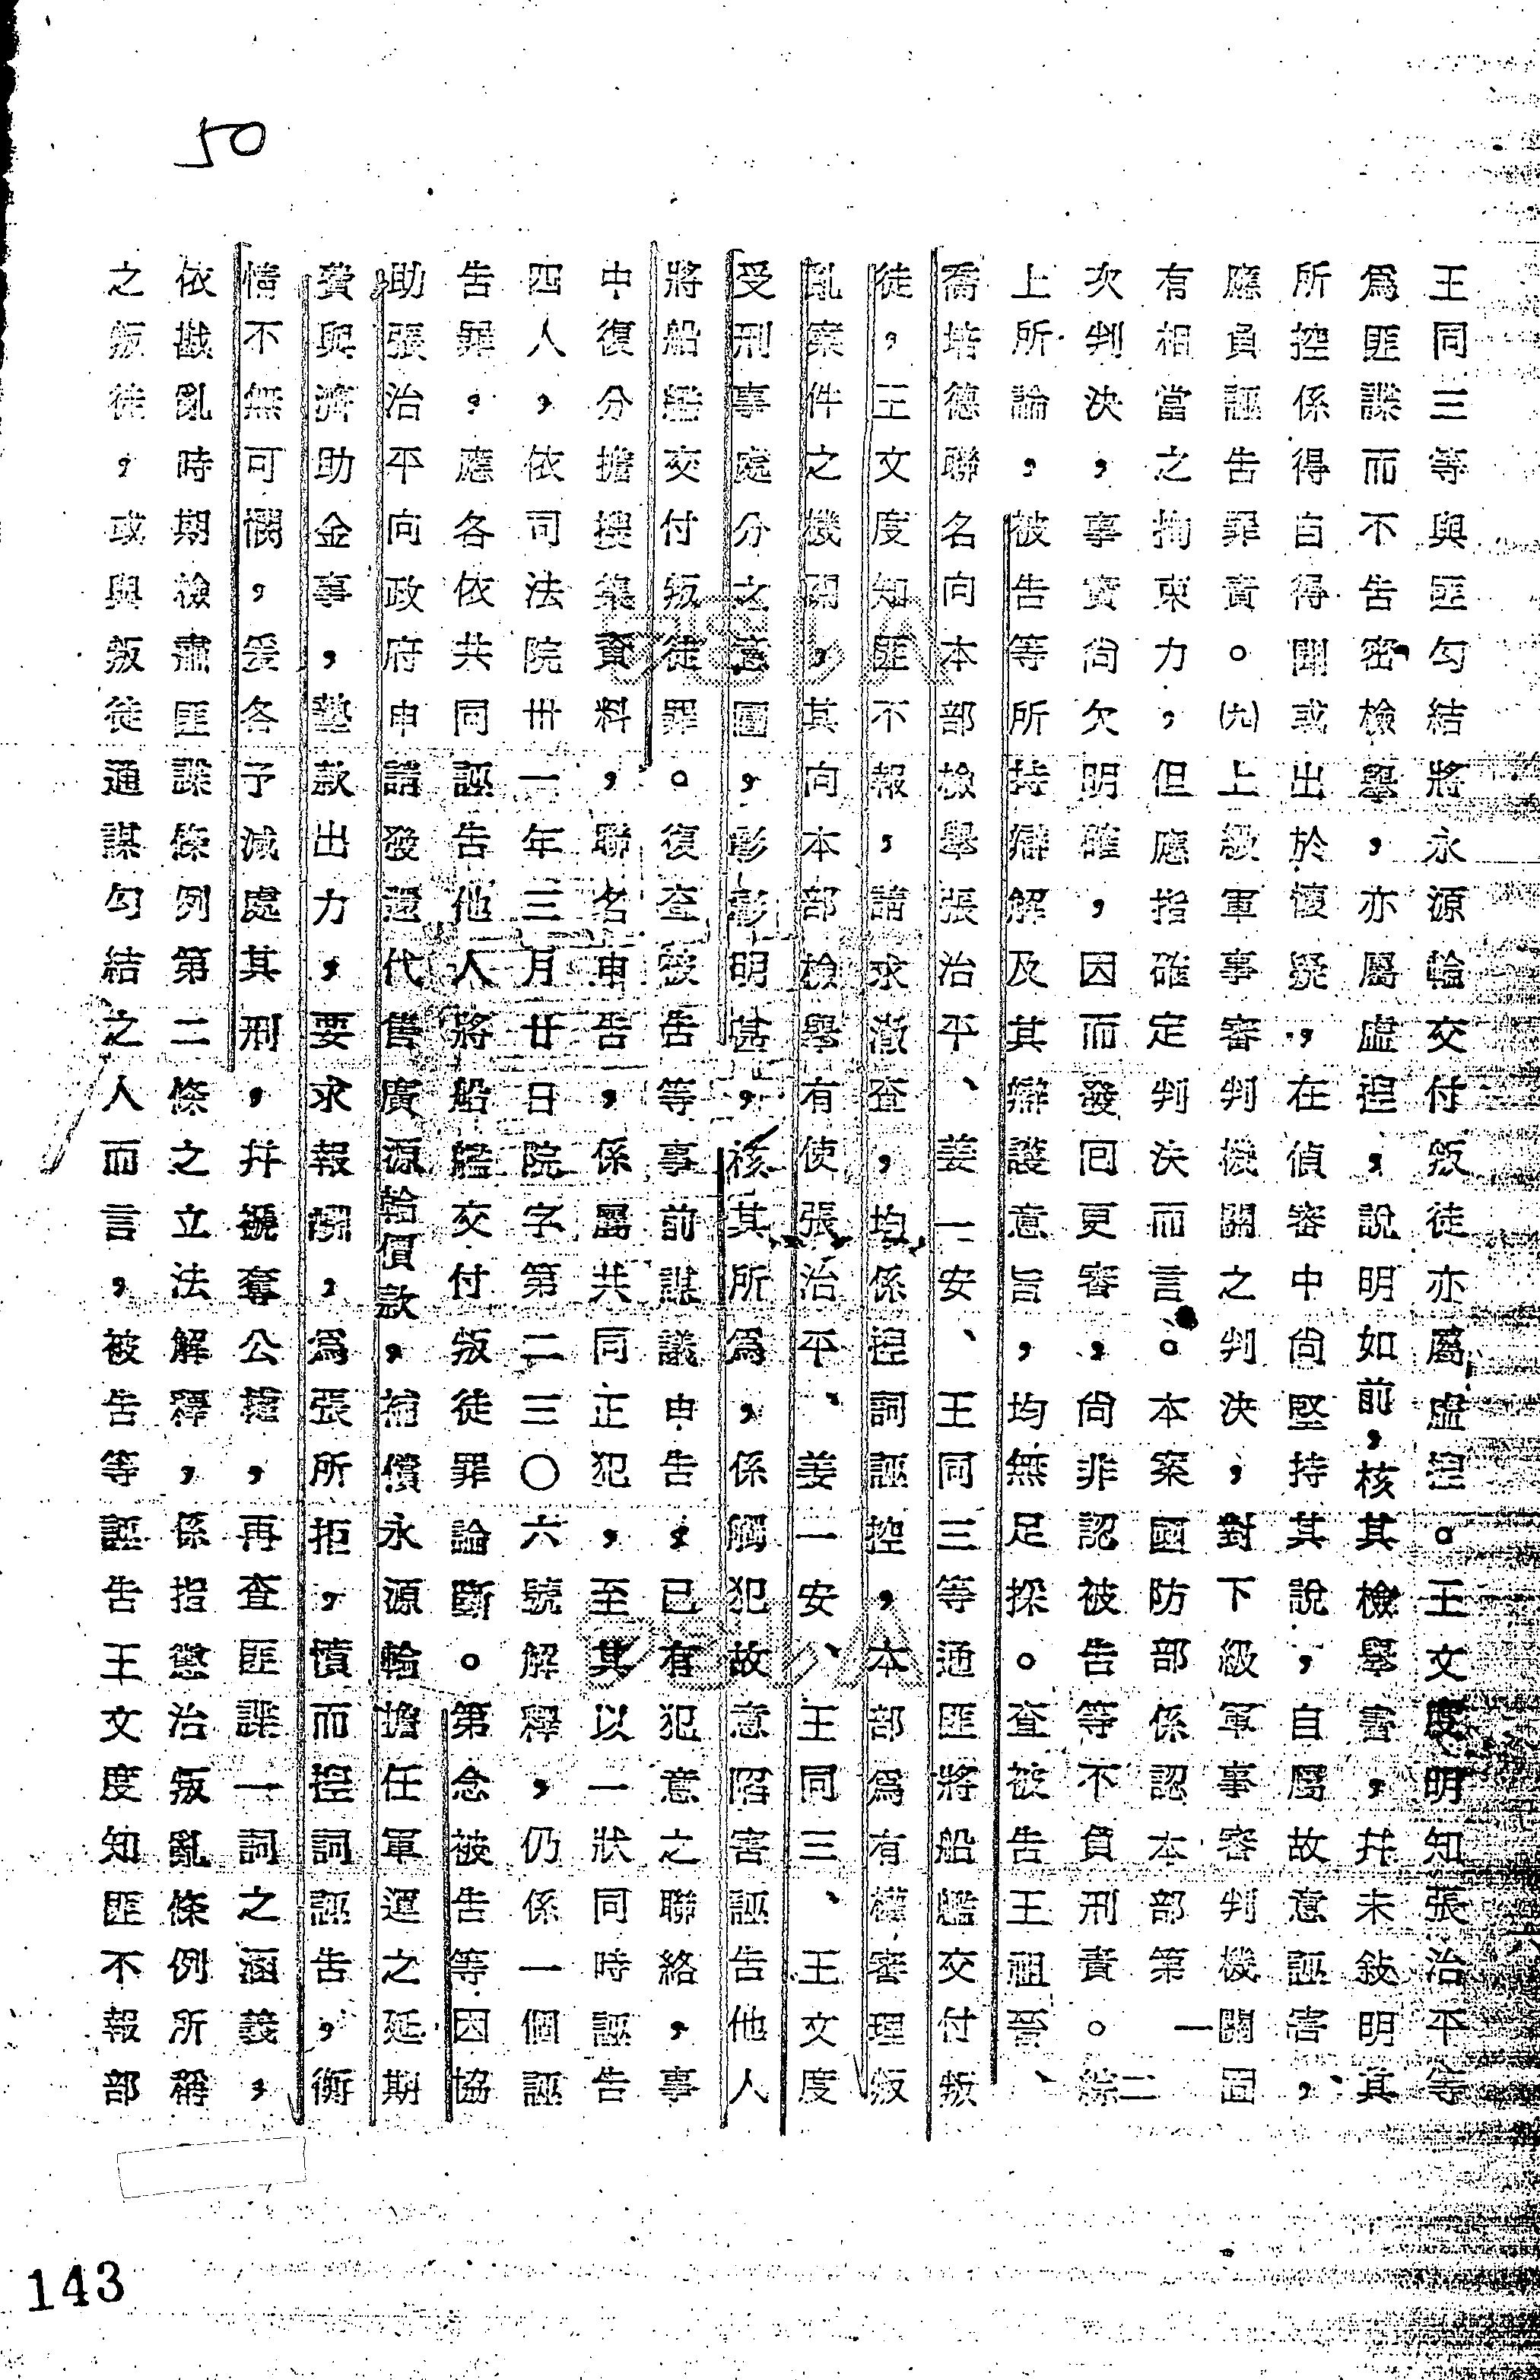 50
王同三等與匪勾結將永源輪交付叛徒亦屬虛揑。王文度明知張治平等
爲匪諜而不告密檢舉，亦屬虛揑，說明如前，核其檢舉書，幷未敍明其
所控係得自得聞或出於懷疑，在偵審中尙堅持其說，自屬故意誣害，
應負誣告罪責。㈨上級軍事審判機關之判決，對下級軍事審判機關固
有相當之拘束力，但應指確定判決而言。本案國防部係認本部第一二
次判決，事實尙欠明確，因而發回更審，尙非認被告等不負刑責。綜
上所論，被告等所持辯解及其辯護意旨，均無足採。查被告王祖晉、
喬培德聯名向本部檢舉張治平、姜一安、王同三等通匪將船艦交付叛
徒，王文度知匪不報，請求澈查，均係揑詞誣控，本部爲有權審理叛
亂案件之機關，其向本部檢舉有使張治平、姜一安、王同三、王文度
受刑事處分之意圖，彰彰明甚，核其所爲，係觸犯故意陷害誣告他人
將船艦交付叛徒罪。復查被告等事前謀議申告，已有犯意之聯絡，事
中復分擔搜集資料，聯名申告，係屬共同正犯，至其以一狀同時誣告
四人，依司法院卅一年三月廿日院字第二三〇六號解釋，仍係一個誣
告罪，應各依共同誣告他人將船艦交付叛徒罪論斷。第念被告等因協
助張治平向政府申請發還代售廣源輪價款，補償永源輪擔任軍運之延期
費與濟助金事，墊款出力，要求報酬，爲張所拒，憤而揑詞誣告，衡
情不無可憫，爰各予減處其刑，幷褫奪公權，再查匪諜一詞之涵義，
依戡亂時期檢肅匪諜條例第二條之立法解釋，係指懲治叛亂條例所稱
之叛徒，或與叛徒通謀勾結之人而言，被告等誣告王文度知匪不報部
143